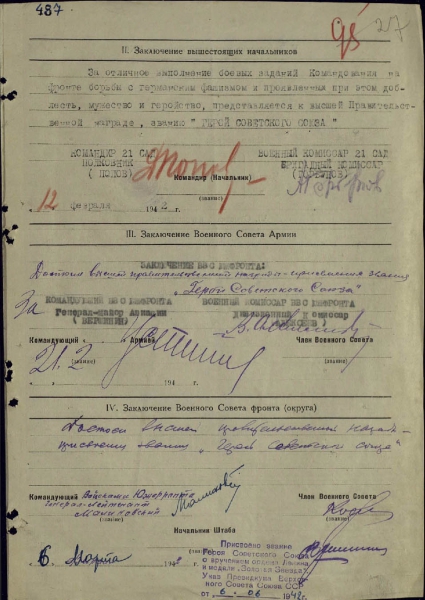 487
II. Заключение вышестоящих начальников
За отличное выполнение боевых заданий Командования на
фронте борьбы с германским фашизмом и проявленные при этом доб-
лесть, мужество и геройство, представляется к высшей Правительст-
венной награде, званию " ГЕРОЙ СОВЕТСКОГО СОЮЗА "
КОМАНДИР 21 САД ВОЕННЫЙ КОМИССАР 21 САД
ПОЛКОВНИК БРИГАДНЫЙ КОМИССАР
( ПОПОВ )
Командир (Начальник)
(звание)
12 февраля 1942
III. Заключение Военного Совета Армии
ЗАКЛЮЧЕНИЕ ВВС ЮЖФРОНТА:
Достоин высшей правительственной награды - присвоения звания
"Герой Советского Союза"
За
КОМАНДУЮЩИЙ ВВС ЮЖФРОНТА ВОЕННЫЙ КОМИССАР ВВС ЮЖФРОНТА
Генерал-майор авиации дивизионный комиссар
( ВЕРШИНИН ) АЛЕКСЕЕВ
Командующий Армией Член Военного Совета
(звание) (звание)
21.2
194 г.
IV. Заключение Военного Совета фронта (округа)
Достоин высшей правительственной награды
присвоения звания "Герой Советского Союза"
Командующий Войсками Южфронта Член Военного Совета
Генерал-лейтенант (звание)
Малиновский
(звание)
Начальник Штаба
(звание)
6 марта 194 г.
Присвоено звание
Героя Советского Союза
с вручением ордена Ленина
и медали "Золотая Звезда"
Указ Президиума Верхов-
ного Совета Союза ССР
от 6.06 1942г.